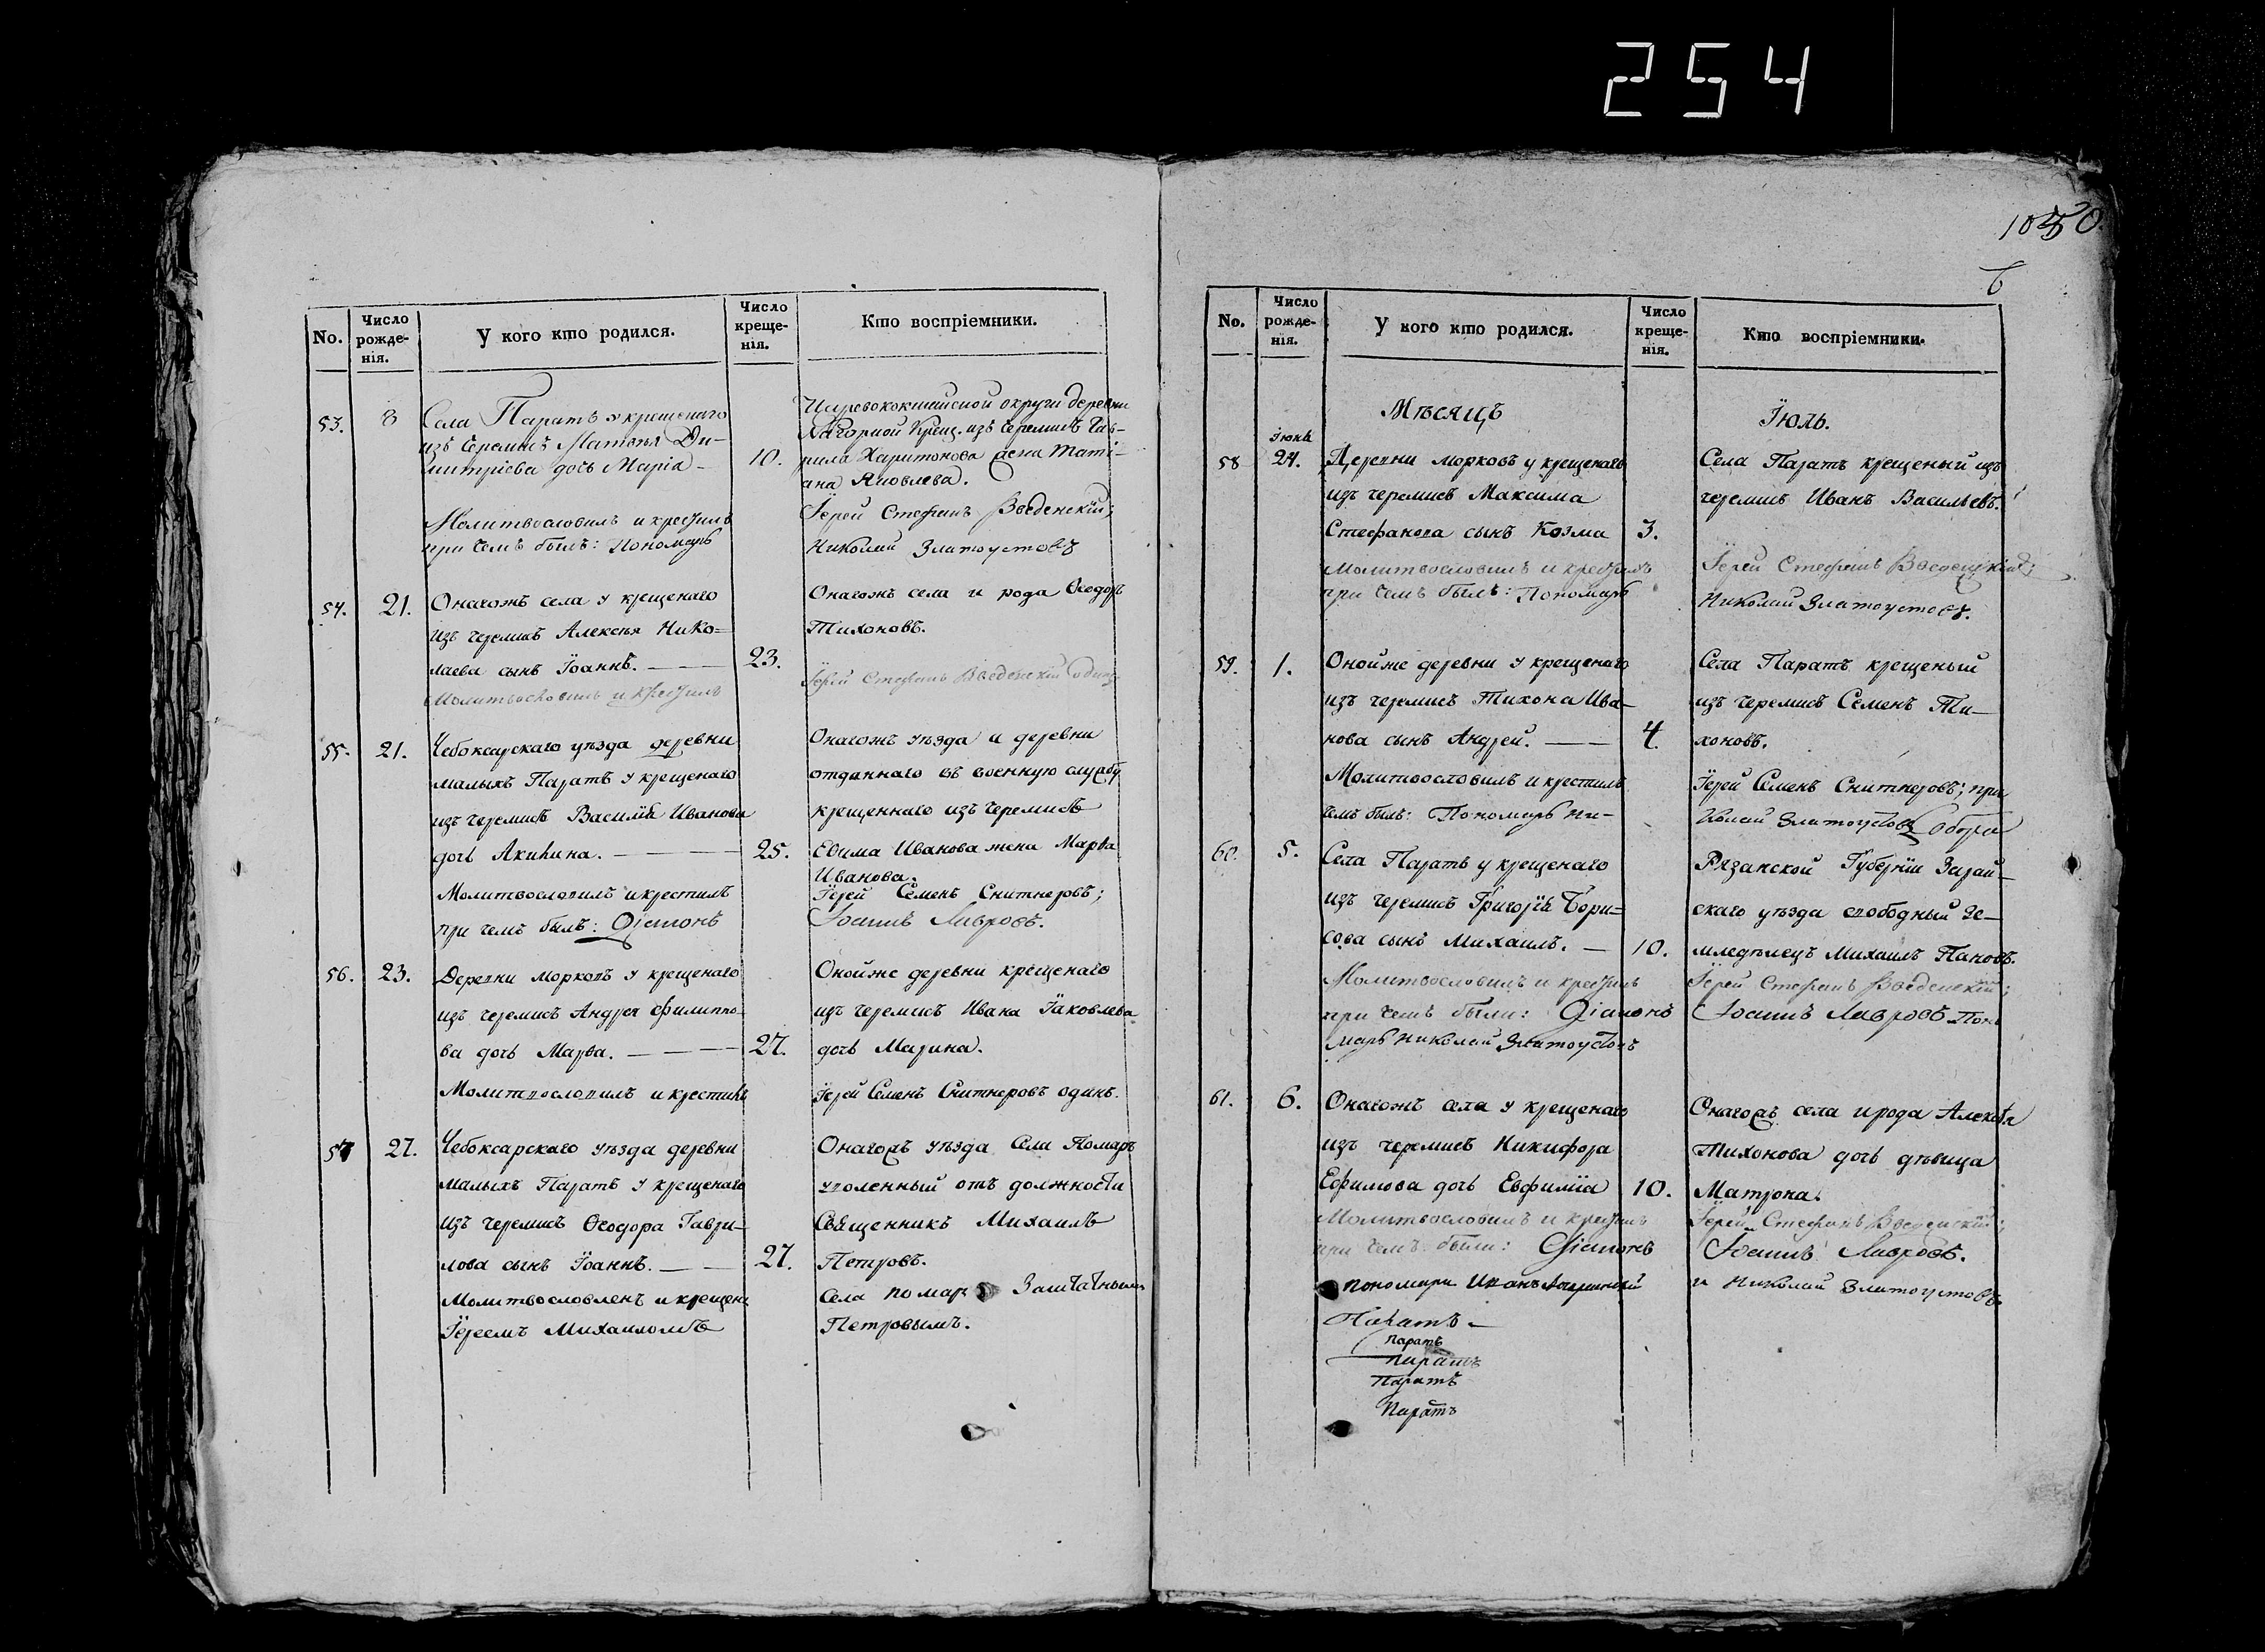 254
10
No.
Число рожде-нія.
У кого кто родился.
Число креще-нія.
Кто воспріемники.
53. 8
Села Паратъ у крещенаго
изъ Черемисъ Матѳея Ди-
митріева дочь Марія - 10.
Царевококшайской округи деревни
Нагорной Крещ. изъ Черемисъ Гав-
рила Харитонова жена Таті-
ана Яковлева.
Молитвословилъ и крестилъ
при чемъ былъ: Пономарь
Іерей Стефанъ Введенскій;
Николай Златоустовъ
54. 21.
Онагожъ села у крещенаго
изъ черемисъ Алексѣя Нико=
лаева сынъ Іоаннъ. 23.
Молитвословилъ и крестилъ
Онагожъ села и рода Ѳеодоръ
Тихоновъ.
Іерей Стефанъ Введенскій одинъ
55. 21.
Чебоксарскаго уѣзда деревни
малыхъ Паратъ у крещенаго
изъ черемисъ Василія Иванова
дочь Акилина. 25.
Молитвословилъ и крестилъ
при чемъ былъ: Діаконъ
Онагожъ уѣзда и деревни
отданнаго въ военную службу
крещеннаго изъ черемисъ
Евима Иванова жена Марѳа
Иванова.
Іерей Семенъ Снитнеровъ;
Іоаннъ Лавровъ.
56. 23.
Деревни Морковъ у крещенаго
изъ черемисъ Андрея Филиппо-
ва дочь Марѳа. 27.
Молитвословилъ и крестилъ
Онойже деревни крещенаго
изъ черемисъ Ивана Іаковлева
дочь Марина.
Іерей Семенъ Снитнеровъ одинъ.
57 27.
Чебоксарскаго уѣзда деревни
малыхъ Паратъ у крещенаго
изъ черемисъ Ѳеодора Гаври-
лова сынъ Іоаннъ. 27.
Молитвословленъ и крещенъ
Іереемъ Михаиломъ
Онагожъ уѣзда Села Помаръ
уволенный отъ должности
Священникъ Михаилъ
Петровъ.
Села Помаръ Заштатнымъ
Петровымъ.
No.
Число рожде-нія.
У кого кто родился.
Число креще-нія.
Кто воспріемники.
Мѣсяцъ Іюль.
58 Іюня 24.
Деревни Морковъ у крещенаго
изъ черемисъ Максима
Стефанова сынъ Козма 3.
Молитвословилъ и крестилъ
при чемъ былъ: Пономарь
Села Паратъ крещеный изъ
черемисъ Иванъ Васильевъ.
Іерей Стефанъ Введенскій;
Николай Златоустовъ.
59. 1.
Онойже деревни у крещенаго
изъ черемисъ Тихона Ива-
нова сынъ Андрей. 4.
Молитвословилъ и крестилъ
чемъ былъ: Пономарь Ни-
Села Паратъ крещеный
изъ черемисъ Семенъ Ти-
хоновъ.
Іерей Семенъ Снитнеровъ; при
колай Златоустовъ
60. 5.
Села Паратъ у крещенаго
изъ черемисъ Григорія Бори=
сова сынъ Михаилъ. 10.
Молитвословилъ и крестилъ
при чемъ были: Діаконъ
марь Николай Златоустовъ
Рязанской Губерніи Зарай-
скаго уѣзда свободный Зе-
мледѣлецъ Михаилъ Пановъ.
Іерей Стефанъ Введенскій;
Іоаннъ Лавровъ Поно
61. 6.
Онагожъ села у крещенаго
изъ черемисъ Никифора
Ефимова дочь Евфиміа 10.
Молитвословилъ и крестилъ
при чемъ были: Діаконъ
пономари Иванъ
Онагожъ села и рода Алексѣя
Тихонова дочь дѣвица
Матрона.
Іерей Стефанъ Введенскій;
Іоаннъ Лавровъ.
и Николай Златоустовъ.
Паратъ
Паратъ
Паратъ
Паратъ
Паратъ